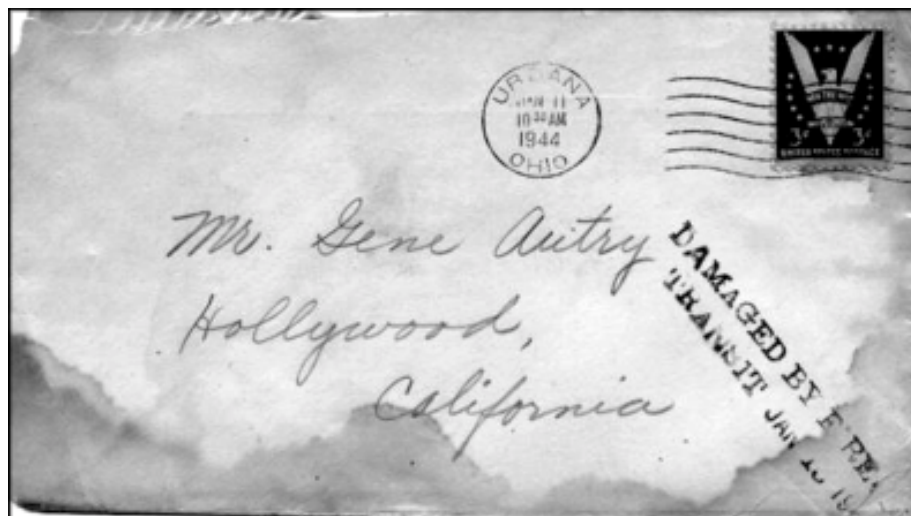 URBANA
JAN 11
10 30 AM
1944
OHIO
3¢ 3¢
UNITED STATES POSTAGE
Mr. Gene Autry
Hollywood,
California
DAMAGED BY FIRE
TRANSIT JAN